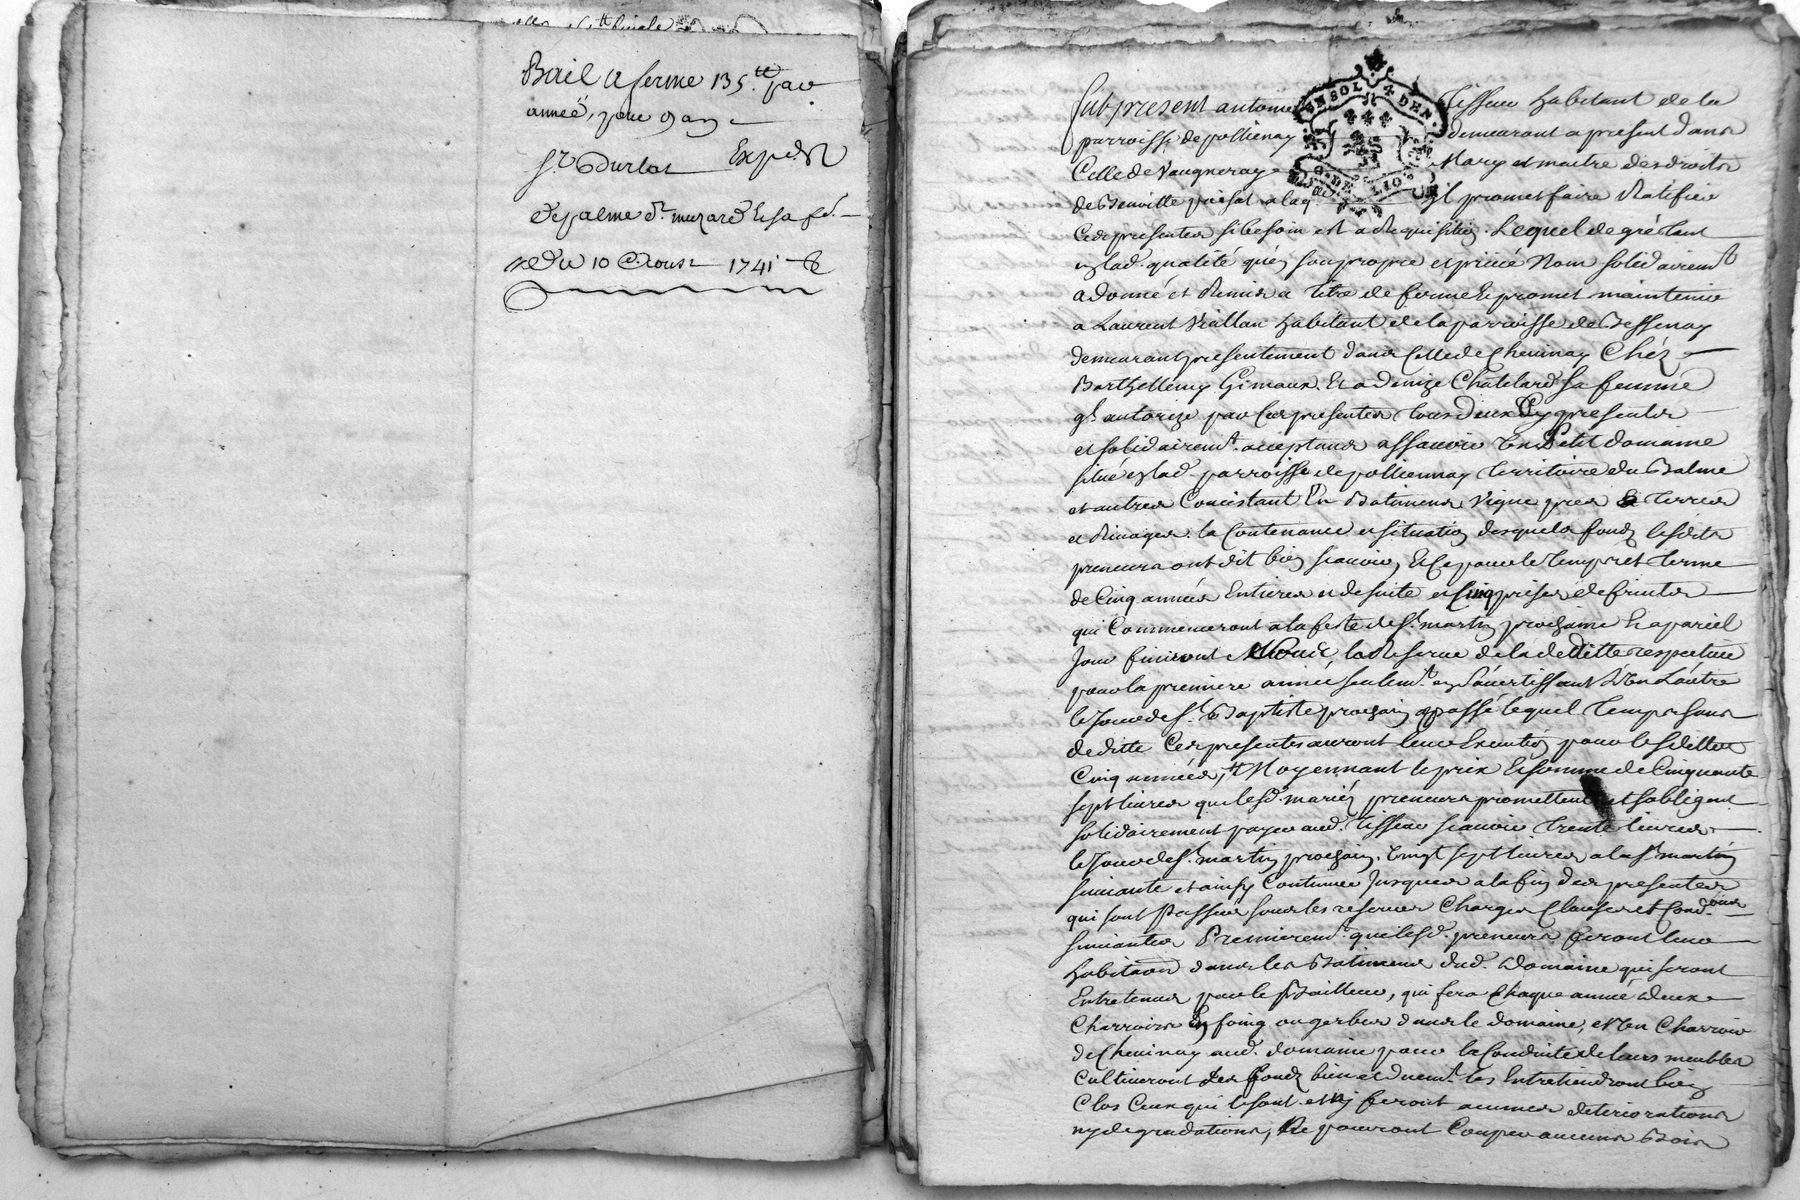 Bail a ferme 135.tt par
année, pour 9 ans
Sr. Durlat Exped.
depalme Sr. muzard & sa fe.
Du 10 Aoust 1741
UN SOL 4. DEN.
G. DE LIO
fut present antoine Tisseur habitant de la
parroisse de pollienay demeurant a present dans
Celle de Vaugneray Mary et maitre des droits
de il promet faire Ratifier
Ces presentes si besoin est a Requisition. Lequel de gré tant
en lad. qualité qu'en son propre et privé Nom solidairemt
a donné et Remis a titre de ferme & promet maintenir
a Laurent Viallan habitant de la parroisse de Bessenay
demeurant presentement dans Celle de Chevinay Chéz
Barthellemy Gimaux. Et a Denize Chatelard sa femme
ql. autorize par Ces presentes tous deux Cy presents
et solidairemt. acceptans assavoir un Petit domaine
situé en lad. parroisse de pollienay territoire du Balme
et autres Concistant En Batimens vigne pres & terres
et Rivages. la Contenance et situation desquels fondz lesdits
preneurs ont dit bien scavoir, Et Ce pour le temps et terme
de Cinq années Entieres et de suite et Cinq prises de fruits
qui Commenceront a la feste de St. martin prochaine Et a pareil
Jour finiront la Reserve de la deditte respective
pour la premiere année seulemt. en s'avertissant L'un L'autre
le Jour de St. Baptiste prochain passé lequel temps sans
deditte Ces presentes auront leur Execution pour lesdittes
Cinq années, Moyennant le prix & somme de Cinquante
sept livres que lesd. mariez preneurs promettent et s'obligent
solidairement payer aud. Tisseur scavoir trente livres
le Jour de St. martin prochain. vingt sept livres a la St. martin
suivante et ainsy Continuer Jusques a la fin des presentes
qui sont Passées sous les reserves Charges Clauses et Condons
suivantes Premieremt. que lesd. preneurs feront leur
habitaon dans les Batimens dud. Domaine qui seront
Entretenus par le Bailleur, qui fera Chaque année deux
Charrois En foing ou gerbes dans le domaine, et un Charroir
de Chevinay aud. domaine pour la Conduite de leurs meubles
Cultiveront les fondz bien et duemt. les Entretiendront bien
Clos Ceux qui le sont et ny feront aucunes deteriorations
ny degradations, Ne pourront Couper aucuns Bois